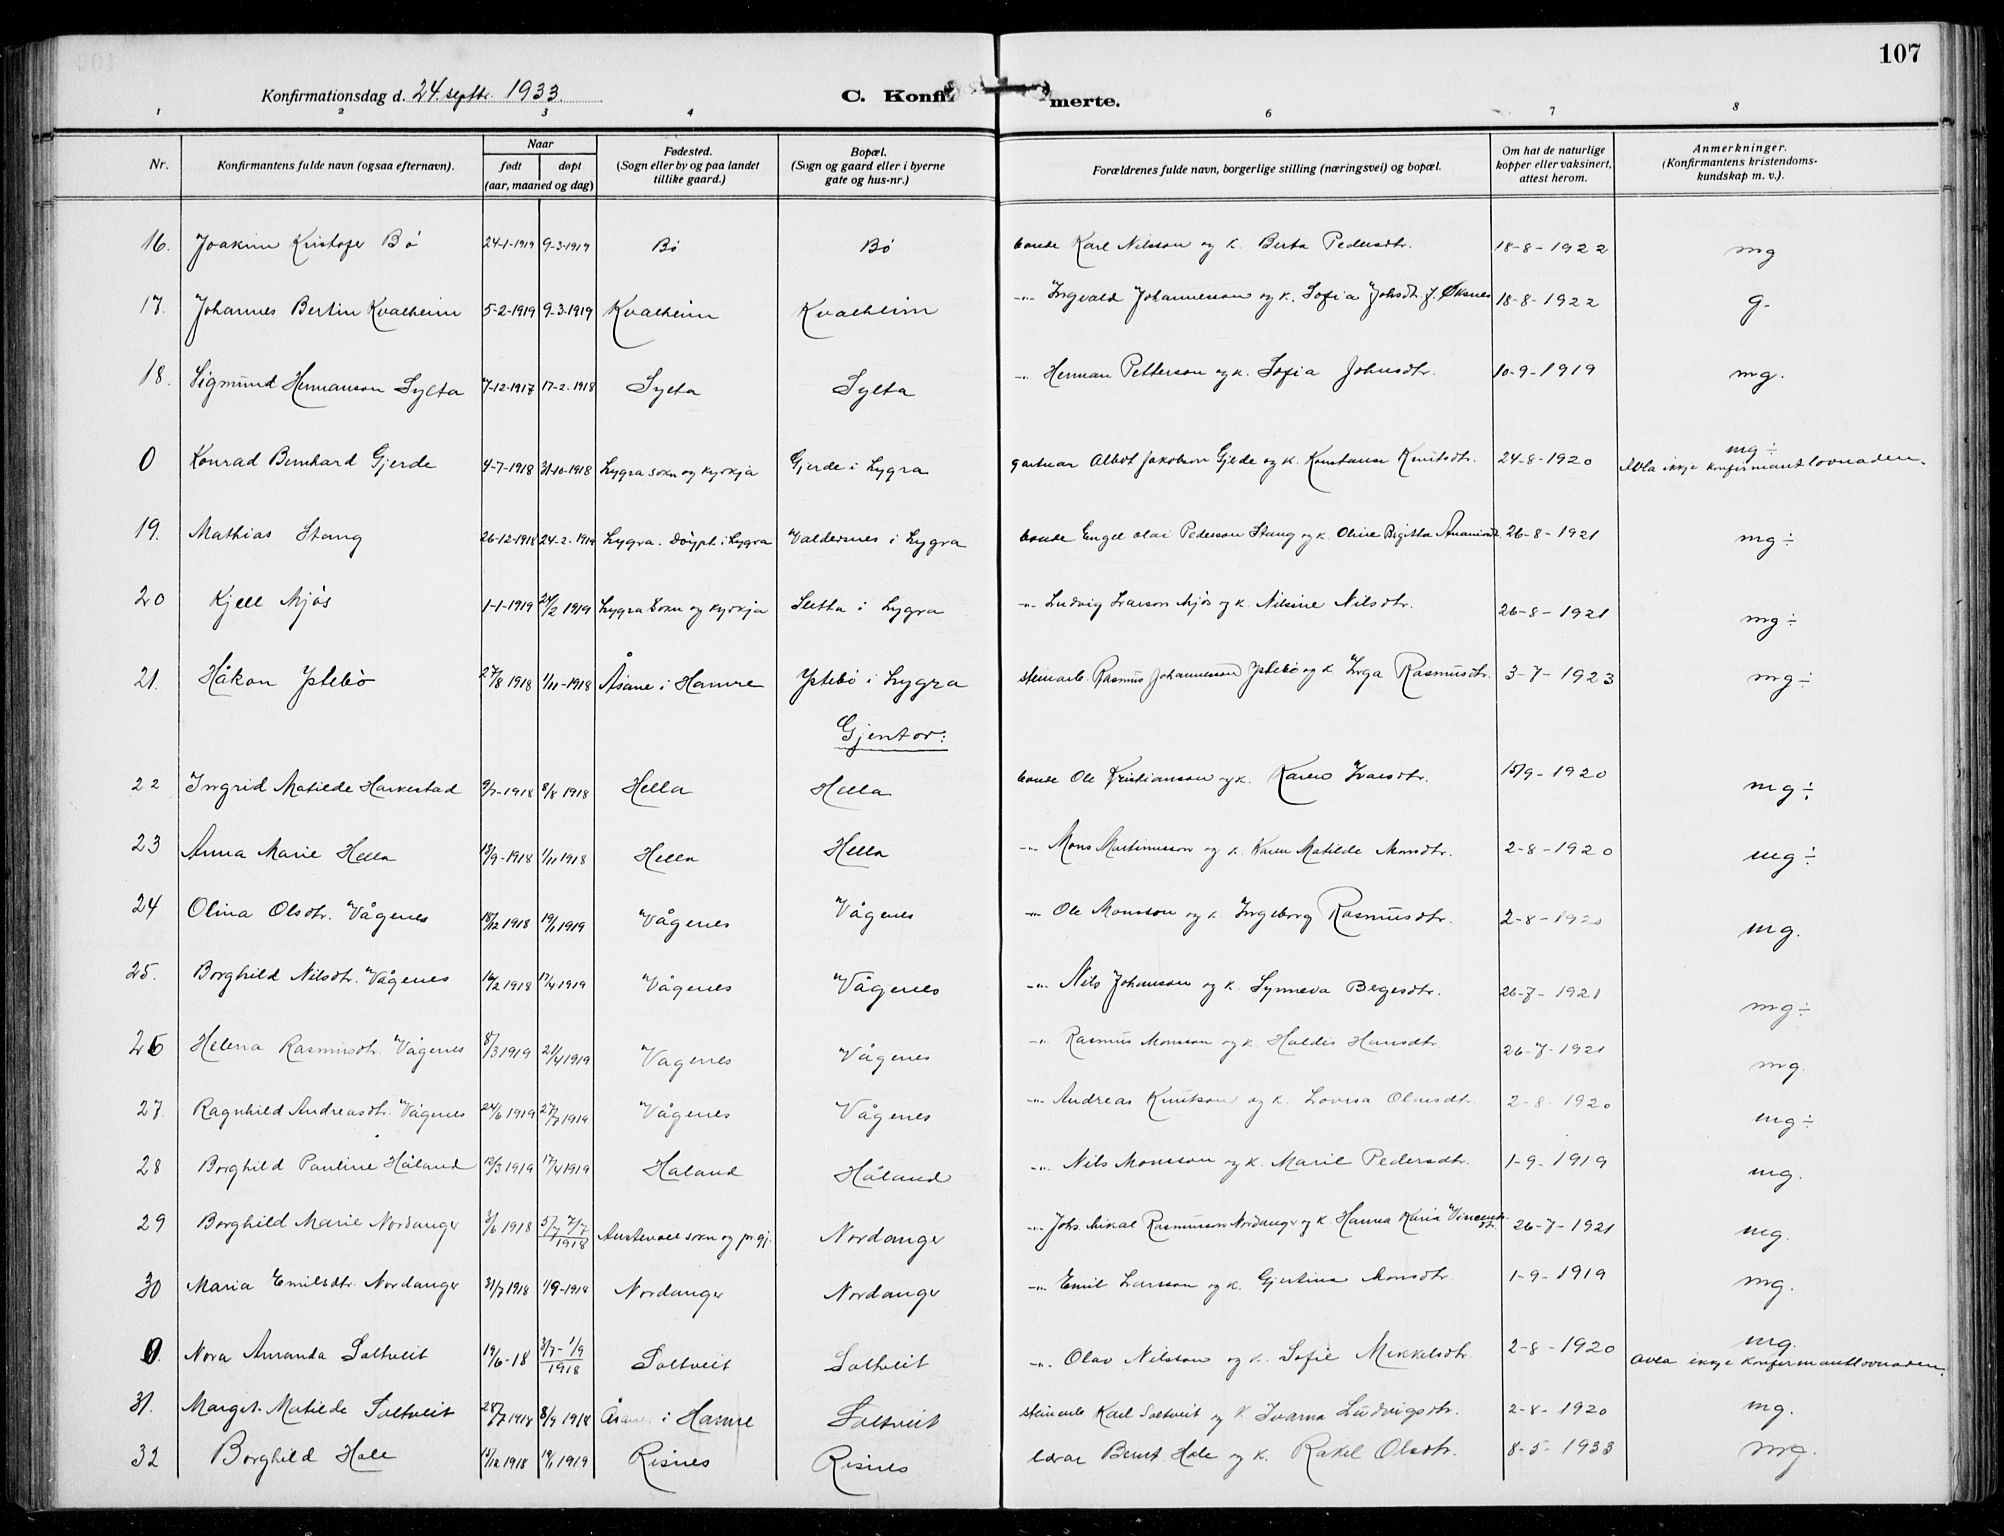 107
Konfirmationsdag d. 24. septbr. 1933.
C. Konfirmerte.
1 2 3 4 5 6 7 8
Nr. Konfirmantens fulde navn (ogsaa efternavn). Naar født døpt (aar, maaned og dag) Fødested. (Sogn eller by og paa landet tillike gaard.) Bopæl. (Sogn og gaard eller i byerne gate og hus-nr.) Forældrenes fulde navn, borgerlige stilling (næringsvei) og bopæl. Om hat de naturlige kopper eller vaksinert, attest herom. Anmerkninger. (Konfirmantens kristendomskundskap m. v.).
16. Joakim Kristofer Bø 24-1-1919 9-3-1919 Bø Bø bonde Karl Nilsson og k. Berta Pedersdtr. 18-8-1922 mg
17. Johannes Bertin Kvalheim 5-2-1919 9-3-1919 Kvalheim Kvalheim -"- Ingvald Johannesson og k. Sofia Johsdtr. f. Øksnes 18-8-1922 g.
18. Sigmund Hermanson Sylta 7-12-1917 17-2-1918 Sylta Sylta -"- Herman Petterson og k. Sofia Johnsdtr. 10-9-1919 mg.
0 Konrad Bernhard Gjerde 4-7-1918 31-10-1918 Lygra sokn og kyrkja Gjerde i Lygra gartnar Albert Jakobson Gjerde og k. Konstanse Knutsdtr. 24-8-1920 mg ÷ Avla ikkje konfirmantlovnaden.
19. Mathias Stang 26-12-1918 24-2-1919 Lygra. Døypt i Lygra Valdernes i Lygra bonde Engel Olai Pederson Stang og k. Oline Birgitta 26-8-1921 mg ÷
20 Kjell Mjøs 1-1-1919 24/2 1919 Lygra sokn og kyrkja Sletta i Lygra -"- Ludvig Ivarson Mjøs og k. Nilsine Nilsdtr. 26-8-1921 mg ÷
21. Håkon Ystebø 27/8 1918 1/11-1918 Åsane i Hamre Ystebø i Lygra steinarb. Rasmus Johannesson Ystebø og k. Inga Rasmusdtr. 3-7-1923 mg ÷
Gjentor:
22 Ingrid Matilde Harkestad 9/7-1918 8/8 1918 Hella Hella bonde Ole Kristianson og k. Karen Ivarsdtr. 15/9-1920 mg ÷
23 Anna Marie Hella 13/9-1918 1/11 1918 Hella Hella -"- Mons Martinusson og k. Karen Matilde Monsdtr. 2-8-1920 mg ÷
24 Olina Olsdtr. Vågenes 18/12 1918 19/1 1919 Vågenes Vågenes -"- Ole Monsson og k. Ingeborg Rasmusdtr. 2-8-1920 mg.
25. Borghild Nilsdtr. Vågenes 16/2 1918 17/4 1919 Vågenes Vågenes -"- Nils Johanson og k. Synneva Bergesdtr. 26-7-1921 mg ÷
26 Helena Rasmusdtr. Vågenes 8/3 1919 21/4 1919 Vågenes Vågenes -"- Rasmus Monsson og k. Haldis Hansdtr. 26-7-1921 mg.
27. Ragnhild Andreasdtr. Vågenes 24/6 1919 27/7 1919 Vågenes Vågenes -"- Andreas Knutson og k. Lovisa Olaisdtr. 2-8-1920 mg ÷
28 Borghild Pauline Håland 12/3 1919 17/4 1919 Håland Håland -"- Nils Monsson og k. Marie Pedersdtr. 1-9-1919 mg.
29 Borghild Marie Nordanger 3/6 1918 5/7 7/7 1918 Austevoll sokn og pr.gj. Nordanger -"- Johs. Mikal Rasmusson Nordanger og k. Hanna Karia Vincentsdtr. 26-7-1921 mg.
30 Maria Emilsdtr. Nordanger 31/7 1918 1/9-1918 Nordanger Nordanger -"- Emil Larsson og k. Gjertina Monsdtr. 1-9-1919 mg.
0. Nora Amanda Saltveit 19/6-18 3/7-1/9 1918 Saltveit Saltveit -"- Olav Nilsson og k. Sofie Mikkelsdtr. 2-8-1920 mg. Avla ikkje konfirmantlovnaden.
31. Margit Matilde Saltveit 28/7 1918 8/9 1918 Åsane i Hamre Saltveit steinarb. Karl Saltveit og k. Ivarna Ludvigsdtr. 2-8-1920 mg.
32 Borghild Hole 15/12 1918 19/1 1919 Risnes Risnes lærar Bernt Hole og k. Rakel Olsdtr. 8-5-1933 mg.